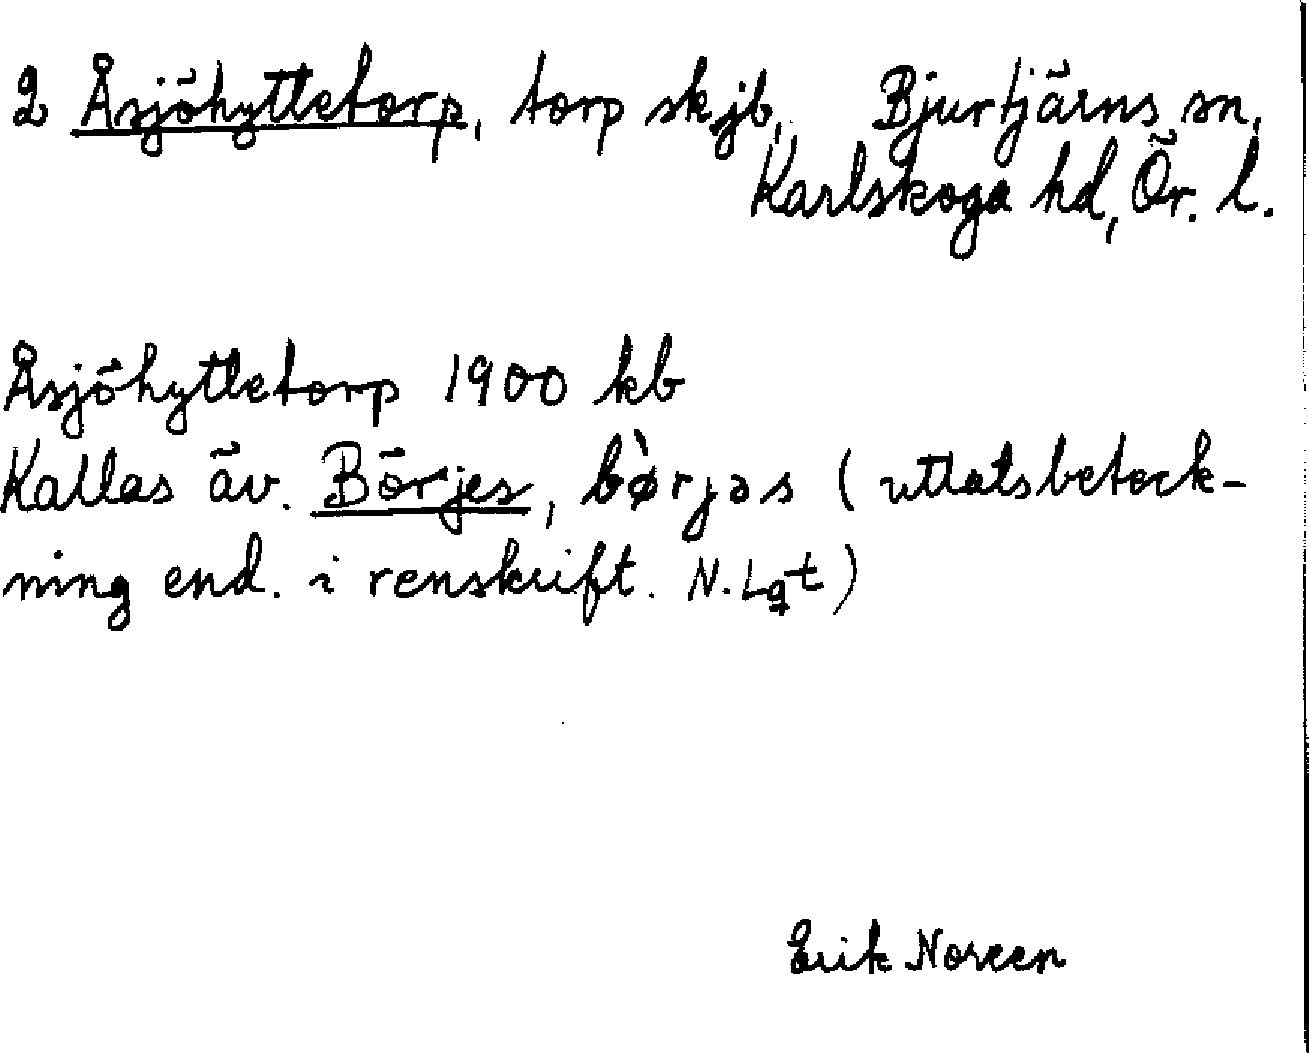 2 Åsjöhyttetorp, torp skjb, Bjurtjärns sn,
Karlskoga hd, Ör. l.
Åsjöhyttetorp 1900 kb
Kallas äv. Börjes, bø̀rjəs (uttalsbeteck-
ning end. i renskrift. N. Lgt)
Erik Noreen